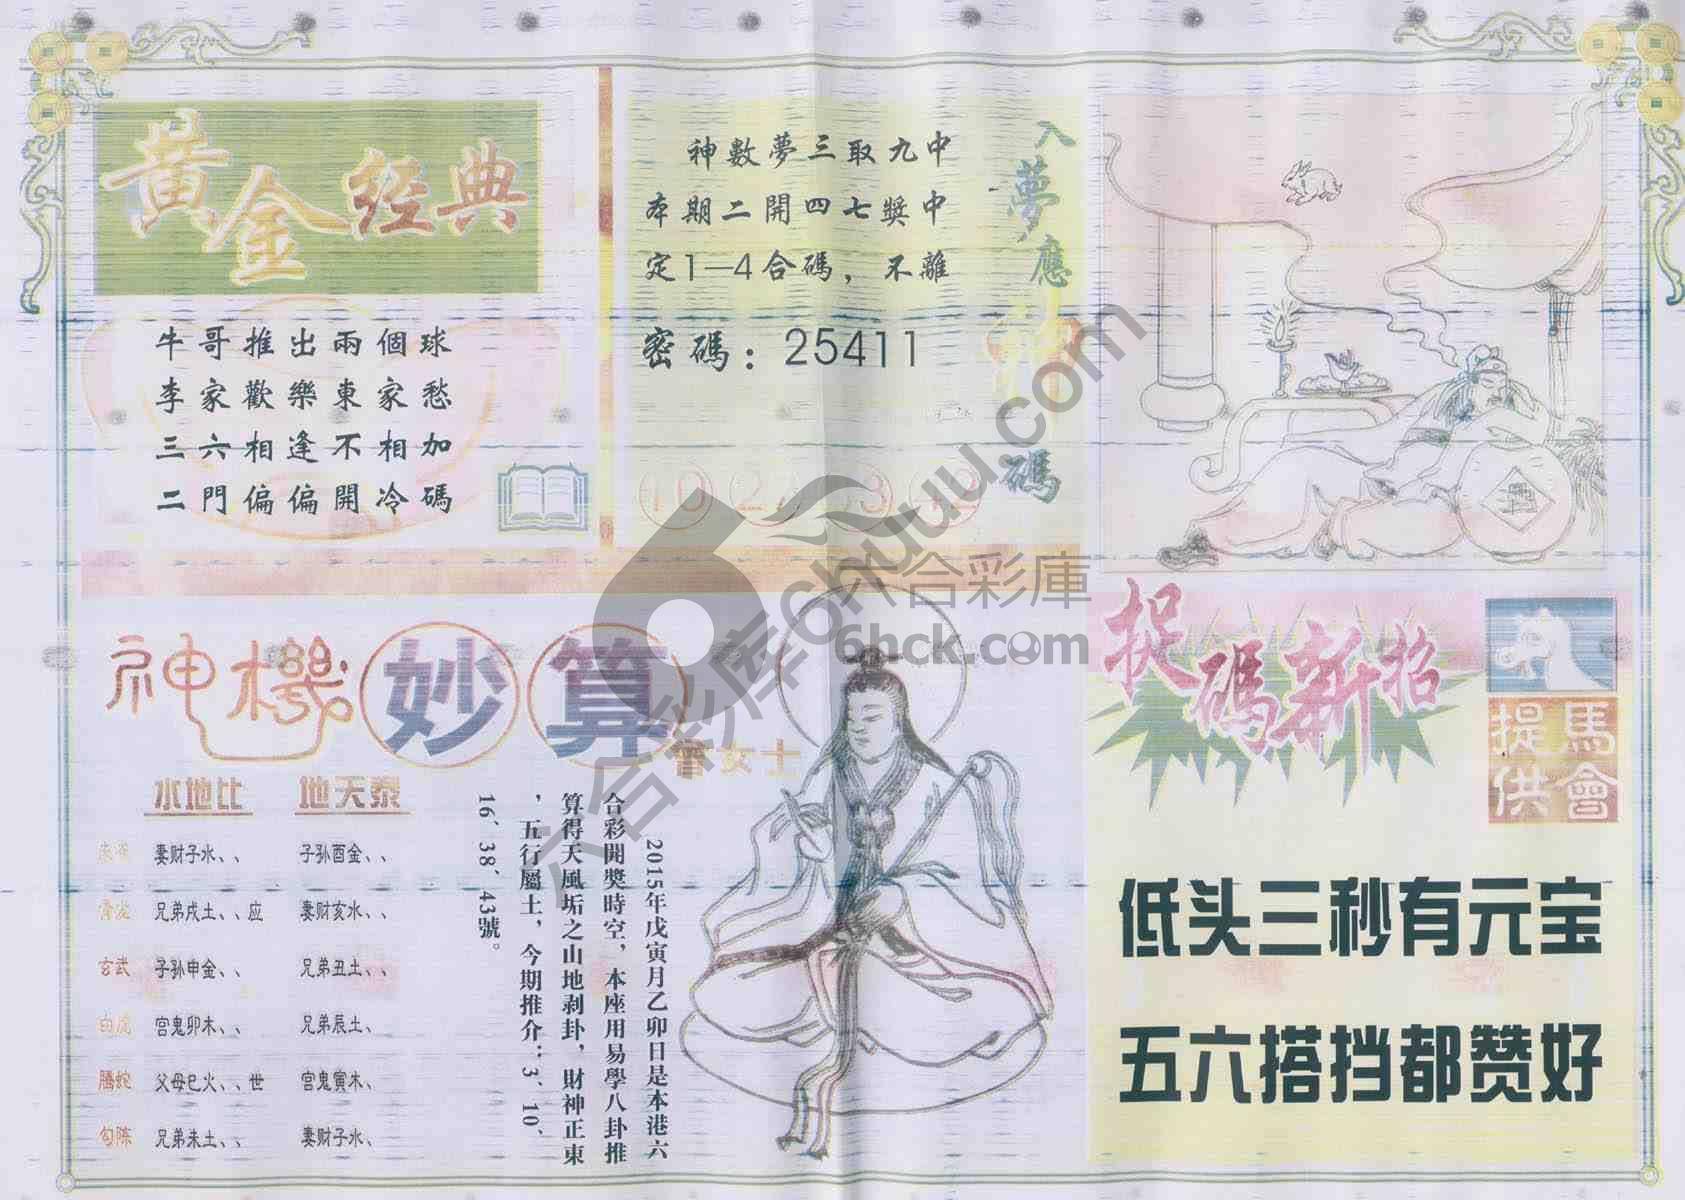 黄金经典
牛哥推出兩個球
李家歡樂東家愁
三六相逢不相加
二門偏偏開冷碼
神數夢三取九中
本期二開四七獎中
定1—4合碼，不離
密碼：25411
入夢應神碼
神機妙算
曾女士
水地比 地天泰
妻财子水、、 子孙酉金、、
兄弟戌土、、应 妻财亥水、、
玄武 子孙申金、、 兄弟丑土、、
白虎 宫鬼卯木、、 兄弟辰土、
騰蛇 父母巳火、、世 宫鬼寅木、
勾陈 兄弟未土、、 妻财子水、
2015年戊寅月乙卯日是本港六
合彩開獎時空，本座用易學八卦推
算得天風垢之山地剥卦，財神正東
，五行屬土，今期推介：3、10、
16、38、43號。
捉碼新招
馬會提供
低头三秒有元宝
五六搭挡都赞好
六合彩库6chuuu.com
六合彩庫
6hck.com